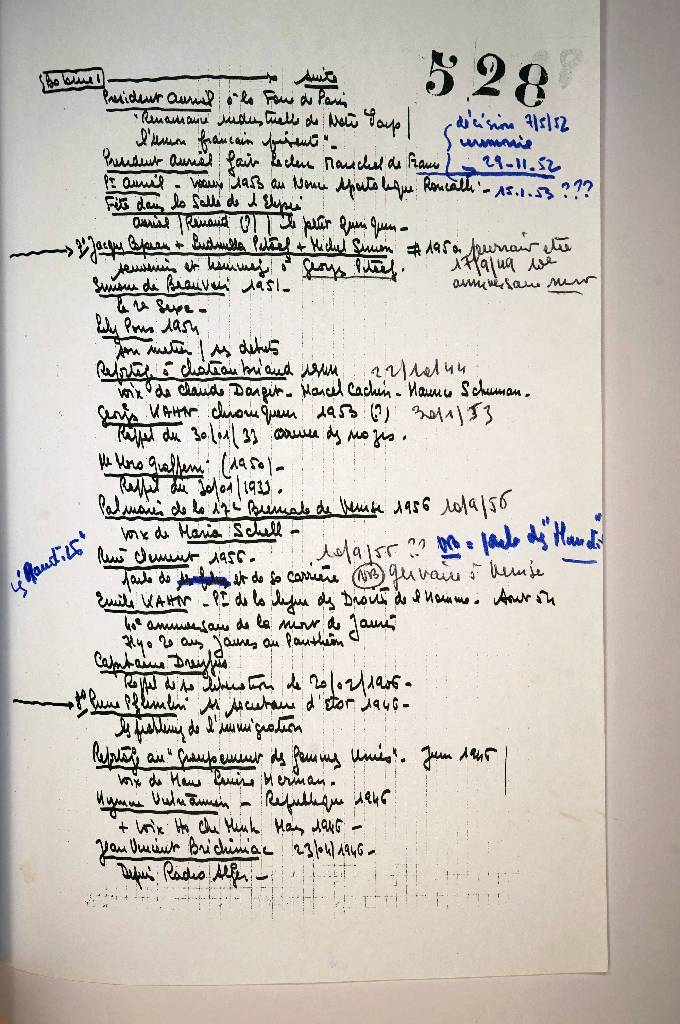 Bobine 1 → suite
528
President Auriol à la Foire de Paris
"Renaissance industrielle de Notre Corp /
l'union français présente" -
décision 7/5/52
ceremonie
President Auriol fait Leclerc Marechal de France
→ 29-11-52
Pt Auriol - voeux 1953 au Nonce Apostolique Roncalli - 15.1.53 ???
Fête dans la Salle de l'Elysée
Auriol / Renaud (?) / le petit Quin Quin -
→ Jacques + Ludmilla Pitoëf + Michel Simon ≠ 1950 pourrait etre
souvenirs et hommage à Georges Pitoëf. 17/9/49 10e
anniversaire mort
Simone de Beauvoir 1951 -
Le 2e Sexe -
Lily Pons 1954
Son metier / ses debuts
Reportage à Chateaubriand 1944 22/10/44
Voix de Claude - Marcel Cachin - Maurice Schuman.
Georges KAHN chroniqueur 1953 (?) 30/1/33
Rappel du 30/01/33 arrivée des nazis.
Me Moro Giafferi (1950) -
Rappel du 30/01/1933.
Palmarès de la 17e Biennale de Venise 1956 10/9/56
Voix de Maria Schell -
René Clement 1956 - 10/9/56 ?? NB = parle des
parle de et de sa carrière NB Gervaise à Venise
Emile KAHN - Pt de la ligue des Droits de l'Homme. Aout 54
40e anniversaire de la mort de Jaurès
Il y a 20 ans Jaures au Panthéon
Capitaine Dreyfus
Rappel de sa liberation le 20/02/1906 -
→ Pflimlin ss secretaire d'Etat 1946 -
les problemes de l'immigration
Reportage au "Groupement des femmes Unies". Juin 1945
Voix de Marie Louise
Hymne Vietnamien - République 1946
+ Voix Ho Chi Minh Mars 1946 -
Jean Vincent 23/04/1946 -
Depuis Radio Alger -